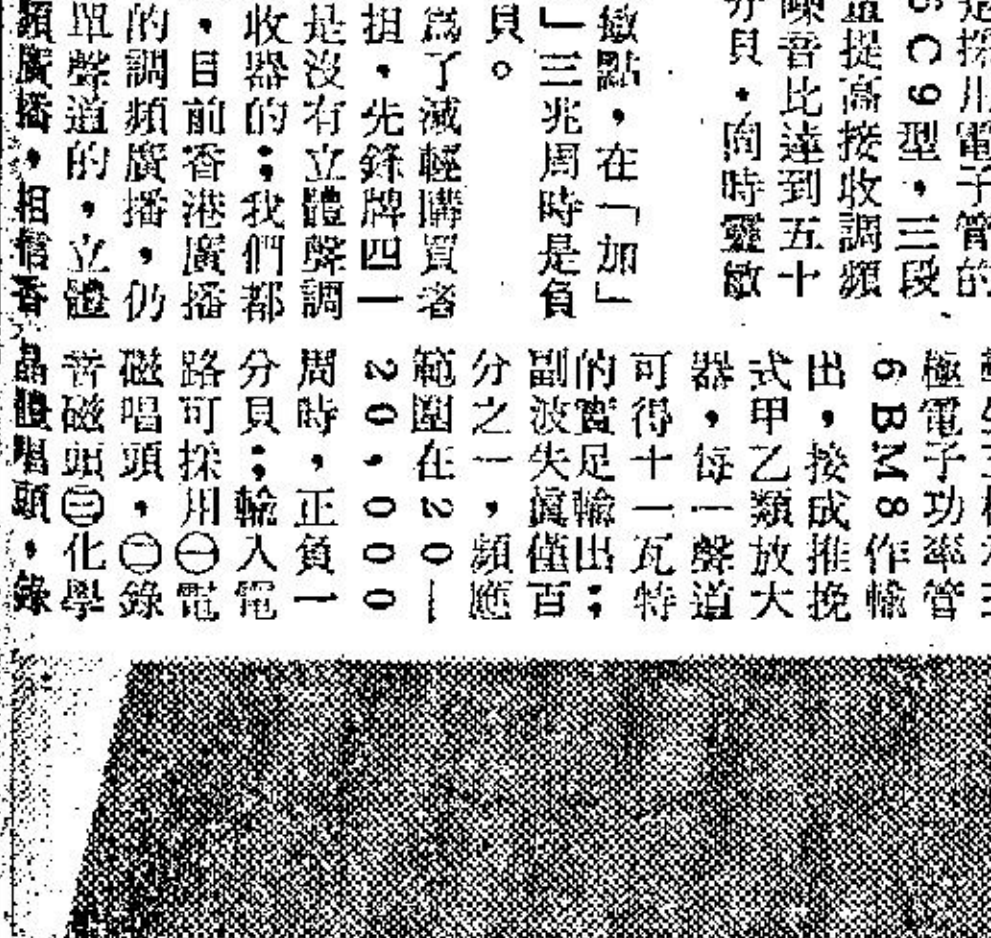 是採用電子管的
6C9型，三段
量提高接收調頻
噪音比達到五十
分貝，同時靈敏
敏點，在「加」
」三兆周時是負
貝。
爲了减輕購買者
担，先錄牌四一
是沒有立體聲調
收器的；我們都
，目前香港廣播
的調頻廣播，仍
單聲道的，立體
頻廣播，相信香
極電子功率管
6BM8作輸
出，接成推挽
式甲乙類放大
器，每一聲道
可得十一瓦特
的實足輸出；
副波失眞僅百
分之一，頻應
範圍在20—
20，000
周時，正負一
分貝；輸入電
路可採用㊀電
磁唱頭，㊁錄
音磁頭㊂化學
晶體唱頭，錄